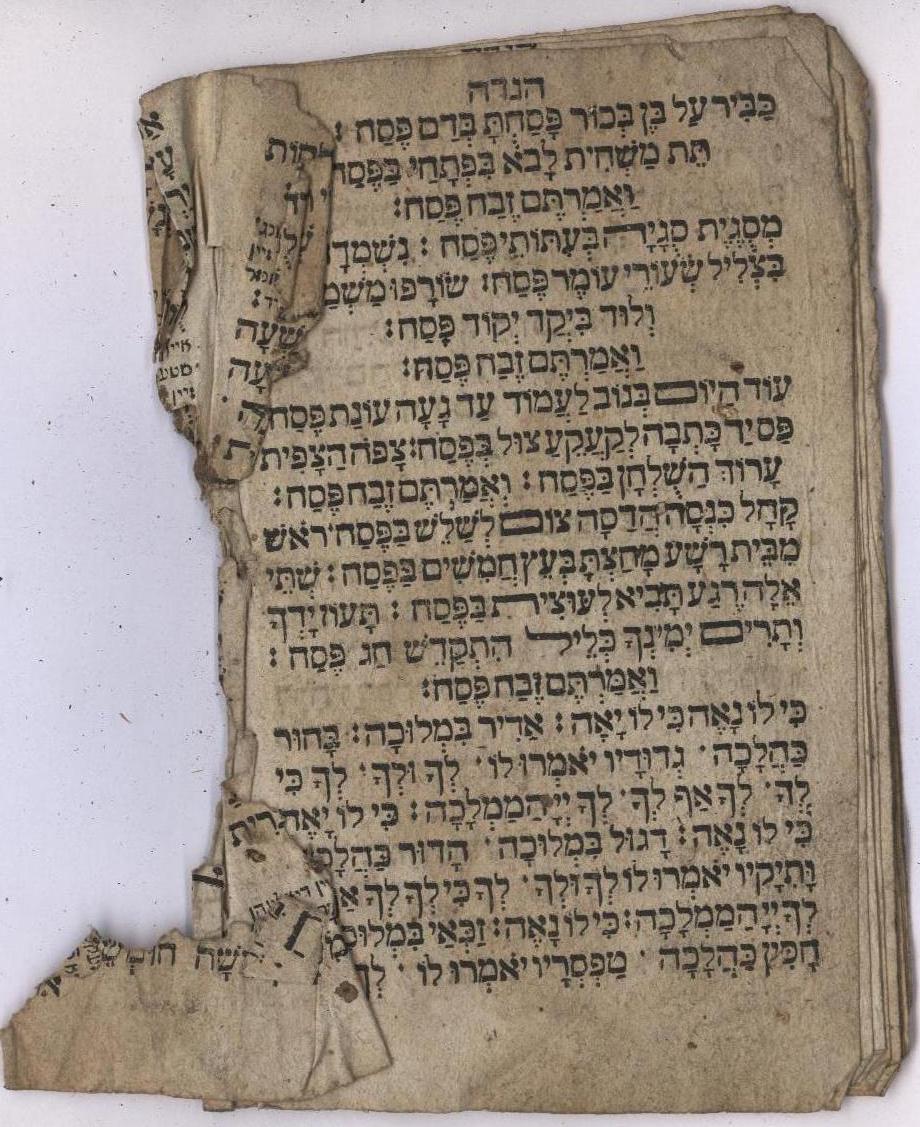 הגדה
כַּבִּיר עַל בֵּן בְּכוֹר פָּסַחְתָּ בְּדַם פֶּסַח :
תֵּת מַשְׁחִית לָבֹא בִּפְתָחַי בַּפֶּסַח
וַאֲמַרְתֶּם זֶבַח פֶּסַח :
מְסֻגֶּרֶת סֻגָּרָה בְּעִתּוֹתֵי פֶּסַח : נִשְׁמְדָה
בִּצְלִיל שְׂעוֹרֵי עוֹמֶר פֶּסַח : שׂוֹרָפוּ מִשְׁמַ
וְלוּד בִּיקַד יְקוֹד פֶּסַח :
וַאֲמַרְתֶּם זֶבַח פֶּסַח :
עוֹד הַיּוֹם בְּנוֹב לַעֲמוֹד עַד גָּעָה עוֹנַת פֶּסַח
פַּס יַד כָּתְבָה לְקַעֲקֵעַ צוּל בַּפֶּסַח : צָפֹה הַצָּפִית
עָרוֹךְ הַשֻּׁלְחָן בַּפֶּסַח : וַאֲמַרְתֶּם זֶבַח פֶּסַח :
קָהָל כִּנְּסָה הֲדַסָּה צוֹם לְשַׁלֵּשׁ בַּפֶּסַח רֹאשׁ
מִבֵּית רָשָׁע מָחַצְתָּ בְּעֵץ חֲמִשִּׁים בַּפֶּסַח : שְׁתֵּי
אֵלֶּה רֶגַע תָּבִיא לְעוּצִית בַּפֶּסַח : תָּעוֹז יָדְךָ
וְתָרִים יְמִינְךָ כְּלֵיל הִתְקַדֵּשׁ חַג פֶּסַח :
וַאֲמַרְתֶּם זֶבַח פֶּסַח :
כִּי לוֹ נָאֶה כִּי לוֹ יָאֶה : אַדִּיר בִּמְלוּכָה : בָּחוּר
כַּהֲלָכָה · גְּדוּדָיו יֹאמְרוּ לוֹ · לְךָ וּלְךָ · לְךָ כִּי
לְךָ · לְךָ אַף לְךָ · לְךָ יְיָ הַמַּמְלָכָה : כִּי לוֹ יָאֶה
כִּי לוֹ נָאֶה : דָּגוּל בִּמְלוּכָה · הָדוּר כַּהֲלָכָ
וָתִיקָיו יֹאמְרוּ לוֹ לְךָ וּלְךָ · לְךָ כִּי לְךָ לְךָ אַ
לְךָ יְיָ הַמַּמְלָכָה : כִּי לוֹ נָאֶה : זַכַּאי בִּמְלוּכָ
חָסִין כַּהֲלָכָה · טַפְסְרָיו יֹאמְרוּ לוֹ · לְךָ